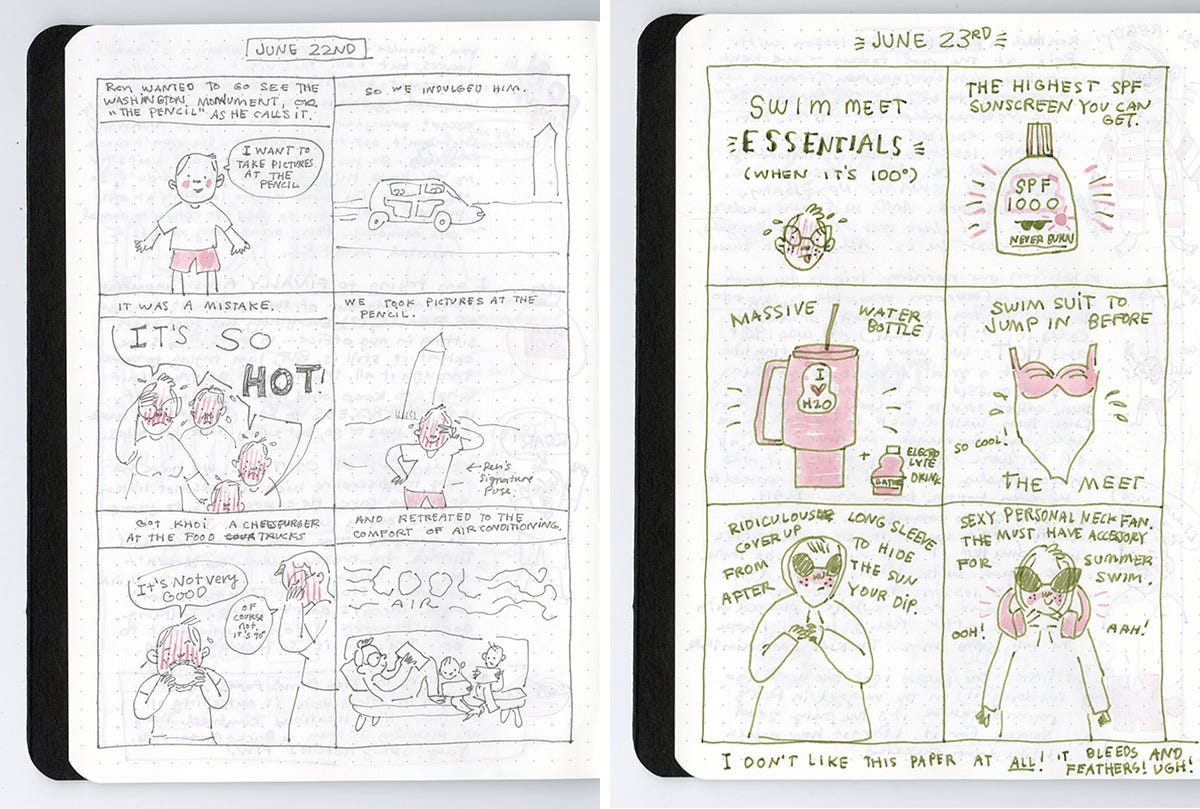 JUNE 22ND
Ren WANTED TO GO SEE THE
WASHINGTON MONUMENT, OR
"THE PENCIL" AS HE CALLS IT.
I WANT TO
TAKE PICTURES
AT THE
PENCIL
SO WE INDULGED HIM.
IT WAS A MISTAKE.
IT'S SO
HOT!
WE TOOK PICTURES AT THE
PENCIL.
Ren's
Signature
Pose.
GOT KHOI A CHEESBURGER
AT THE FOOD TRUCKS
It's Not very
GOOD
OF
course
not,
it's 98°
AND RETREATED TO THE
COMFORT OF AIRCONDITIONING.
COOL
AIR
JUNE 23RD
SWIM MEET
ESSENTIALS
(WHEN IT'S 100°)
THE HIGHEST SPF
SUNSCREEN YOU CAN
GET.
SPF
1000
NEVER BURN
MASSIVE WATER
BOTTLE
I
♥
H2O
+
ELECTRO
LYTE
DRINK
GATOR
SWIM SUIT TO
JUMP IN BEFORE
SO COOL!
THE MEET
RIDICULOUS LONG SLEEVE
COVERUP TO HIDE
FROM THE SUN
AFTER YOUR DIP.
SEXY PERSONAL NECK FAN.
THE MUST HAVE ACCESSORY
FOR SUMMER
SWIM.
OOH!
AAH!
I DON'T LIKE THIS PAPER AT ALL! IT BLEEDS AND
FEATHERS! UGH!